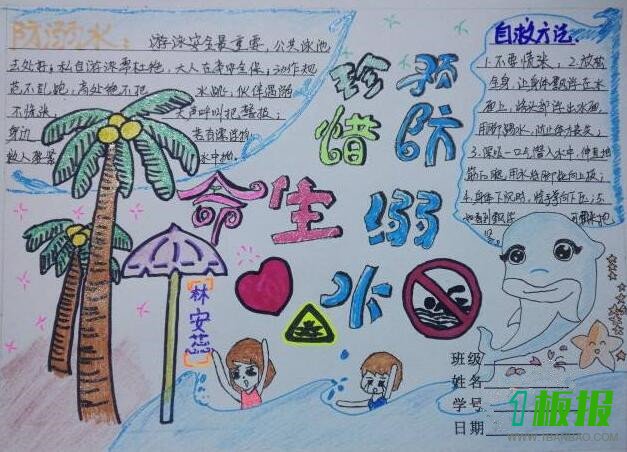 防溺水:
游泳安全最重要,公共泳池
去处好;私自游泳要杜绝,大人在旁
不乱跑,高处绝不把 水跳,伙伴遇溺
不慌张, 大声呼叫把警报;
身边
救人 水中抛
珍 预
惜 防
命 生 溺
水
林安蕊
自救方法:
1.不要慌张, 2.放松
全身,让身体飘浮在水
面上,将头部浮出水面,
用脚踢水,防止体力丧失;
3.深吸一口气潜入水中,伸直抽
筋的腿,用水将脚趾向上扳;
4.身体下沉时,
班级
姓名
学号
日期
1板报
WWW.1BANBAO.COM